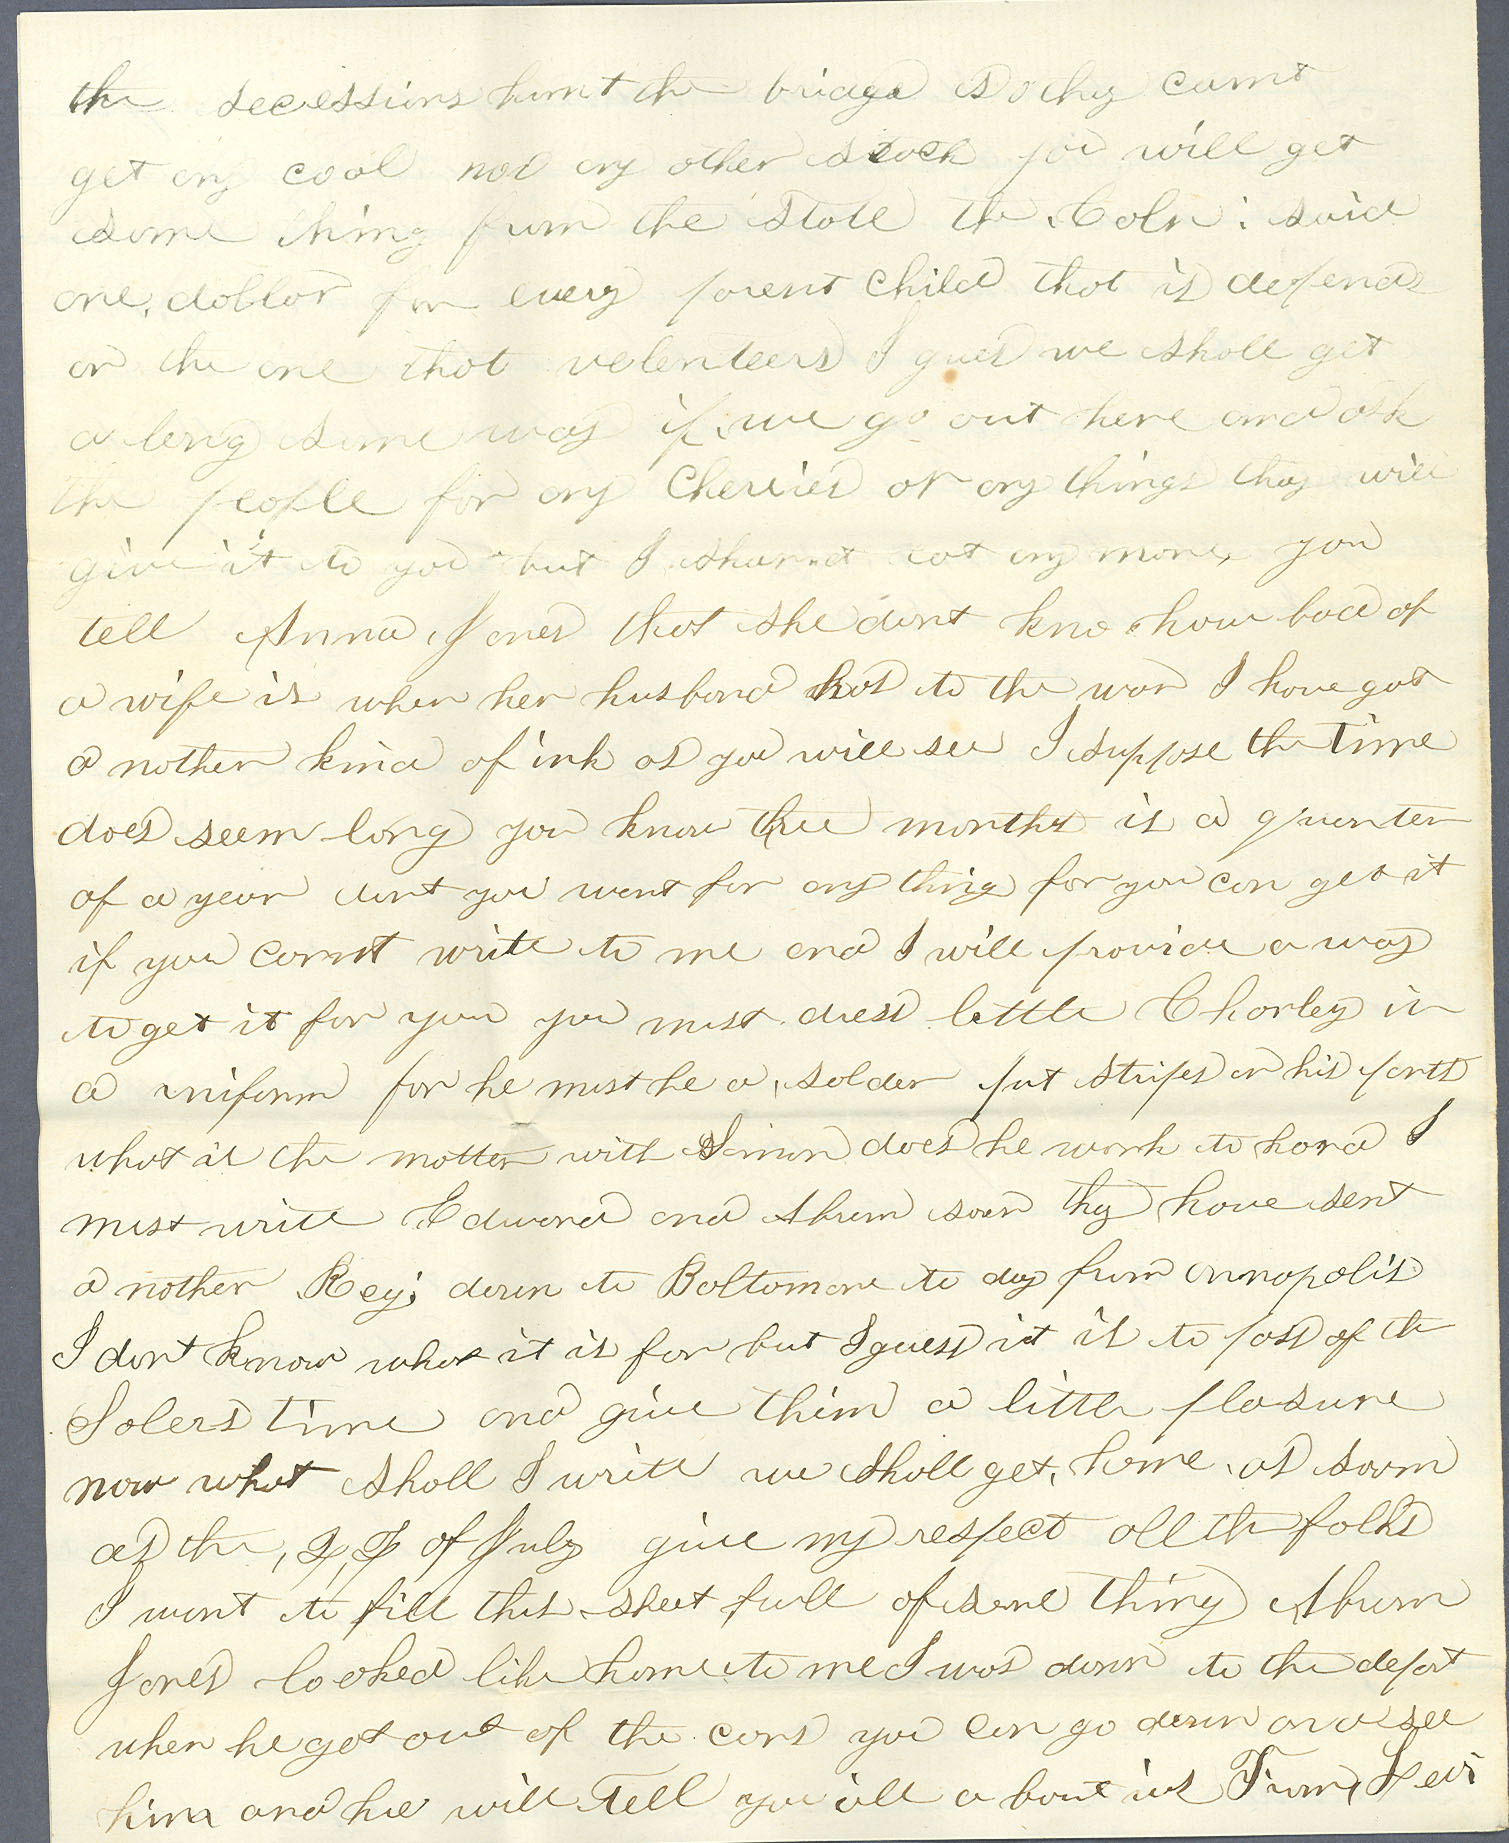 the secessions burnt the bridge so thy carnt
get any coal nor any other stock you will get
some thing frum the State the Coln: said
one, dollor for every parent child that is depends
on the one that volenteers I gues we shall get
a long some way if, we go out here and ask
the people for any Cherries or any things they will
give it to you but I sharnt eat any more, you
tell Anna Jones that she dont kno how bad of
a wife is when her husband has to the war I have got
a nother kind of ink as you will see I suppose the time
does seem long you know three months is a quarter
of a year dont you want for any thing for you can get it
if you carnt write to me and I will provide a way
to get it for you you must dress little Charley in
a uniform for he must be a, solder put stripes on his pants
what is the matter with Simon does he work to hard I
must write Edward and Abrum soon thy have sent
a nother Reg; down to Baltomore to day frum annapolis
I dont know what it is for but I guess it is to pass of the
Solers time and give them a little plasure
now what shall I write we shall get, home, as soom
as the, of July give my respect all the folks
I want to fill this sheet full of some thing Abrum
Jones looked like home to me I was down to the depot
when he got out of the cars you can go down and see
him and he will Tell you all a bout us From, Levi